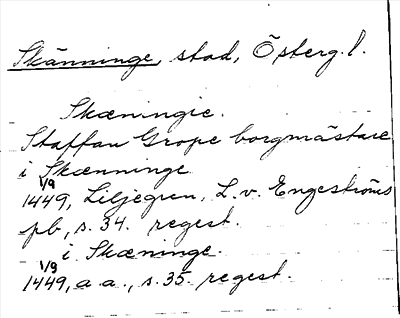 Skänninge, stad, Österg.l.
Skæningie.
Staffan Grope borgmästare
i Skænninge
1/9
1449, Liljegren, L. v. Engeströms
pb, s. 34. regest.
i Skæninge.
1/9
1449, a a., s. 35. regest.